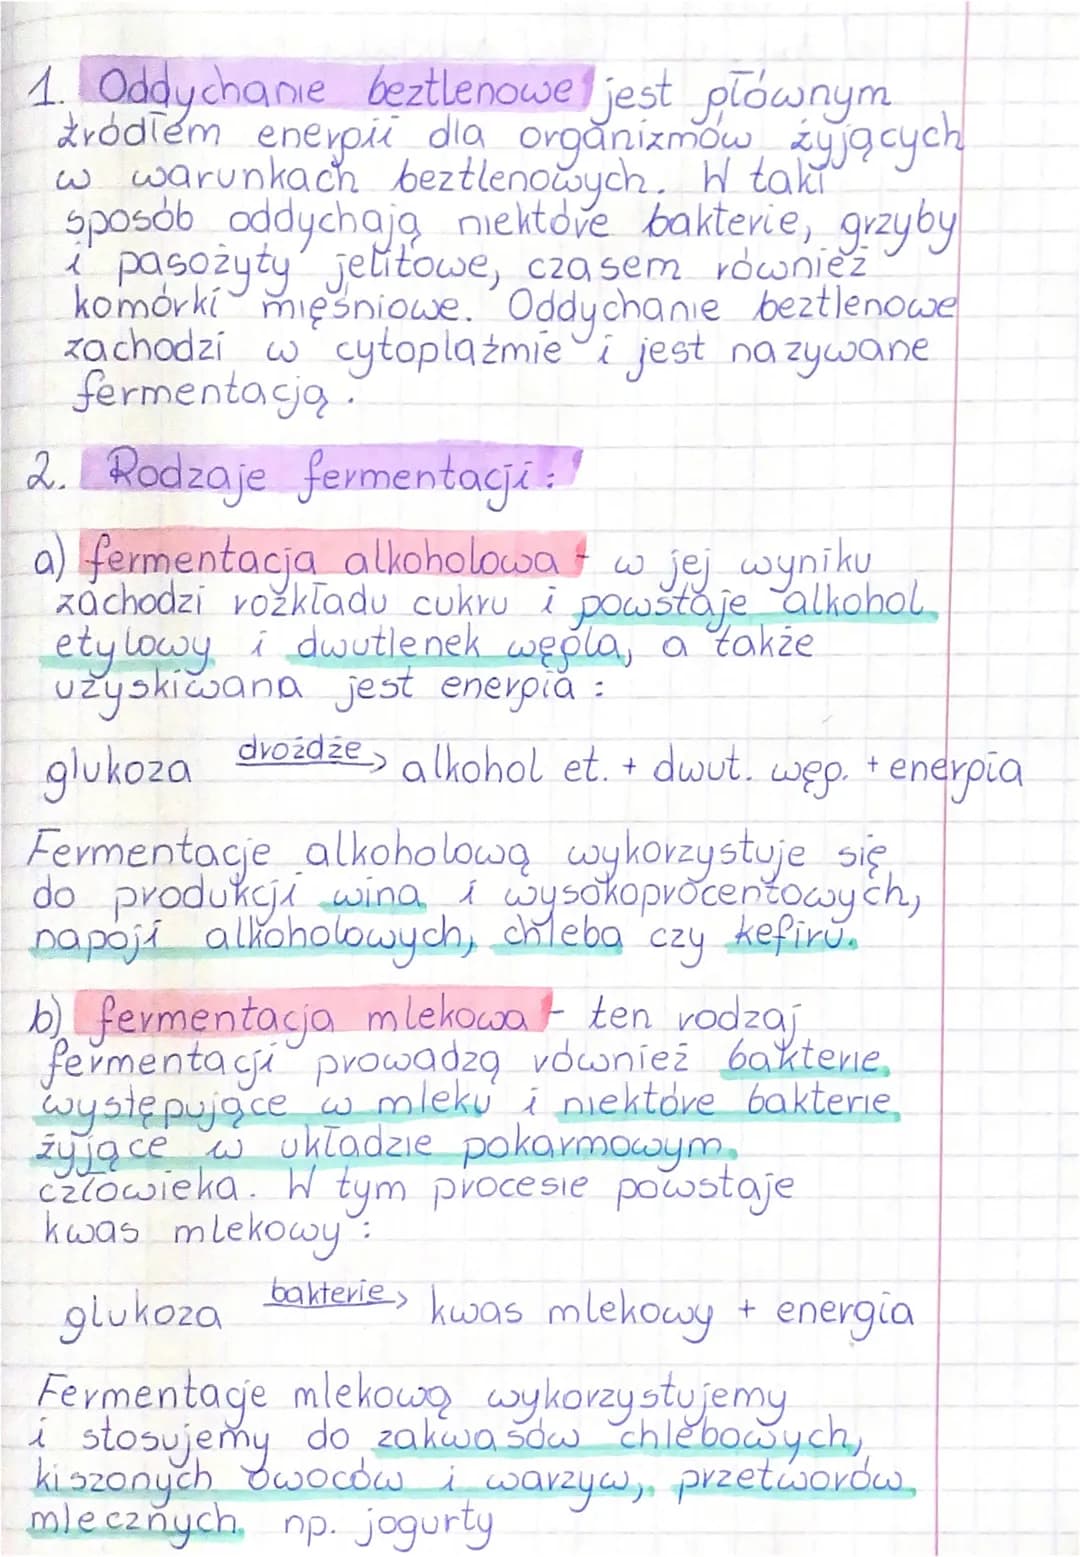 1. Oddychanie beztlenowe jest głównym
źródłem energii dla organizmów żyjących
w warunkach beztlenowych. W taki
sposób oddychają niektóre bakterie, grzyby
i pasożyty jelitowe, czasem również
komórki mięśniowe. Oddychanie beztlenowe
zachodzi w cytoplaźmie i jest nazywane
fermentacją.
2. Rodzaje fermentacji:
a) fermentacja alkoholowa - w jej wyniku
zachodzi rozkładu cukru i powstaje alkohol
etylowy i dwutlenek węgla, a także
uzyskiwana jest energia:
glukoza drożdże> alkohol et. + dwut. węg. + energia
Fermentacje alkoholową wykorzystuje się
do produkcji wina i wysokoprocentowych,
napoji alkoholowych, chleba czy kefiru.
b) fermentacja mlekowa - ten rodzaj
fermentacji prowadzą również bakterie
występujące w mleku i niektóre bakterie
żyjące w układzie pokarmowym
człowieka. W tym procesie powstaje
kwas mlekowy:
glukoza bakterie> kwas mlekowy + energia
Fermentacje mlekową wykorzystujemy
i stosujemy do zakwasów chlebowych,
kiszonych owoców i warzyw, przetworów
mlecznych np. jogurty